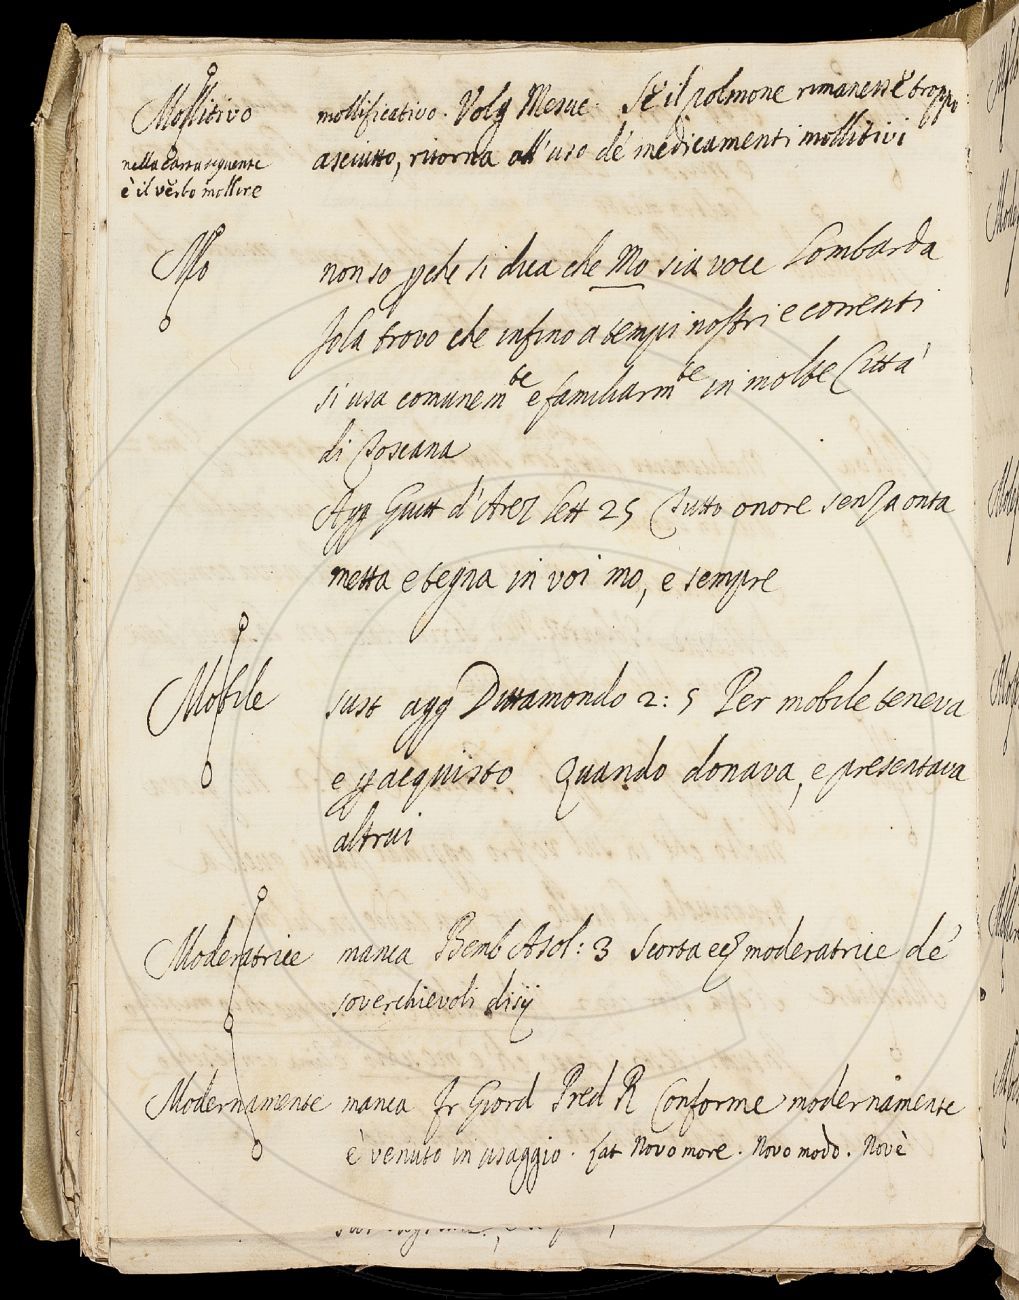 Mollitivo mollificativo. Volg Mesue. Se il polmone rimanesse troppo
asciutto, ritorna all'uso de' medicamenti mollitivi
nella carta seguente
è il verbo mollire
Mo non so pche si dica che Mo sia voce Lombarda
Io la trovo che infino a tempi nostri e correnti
si usa comunemte e familiarmte in molte Città
di Toscana
Agg Guitt d'Arez Lett 25 Tutto onore senza onta
metta e tegna in voi mo, e sempre
Mobile sust agg Dittamondo 2: 5 Per mobile teneva
e p acquisto Quando donava, e presentava
altrui
Moderatrice manca Bemb Asol: 3 Scorta e moderatrice de'
soverchievoli disij
Modernamente manca Fr Giord Pred R Conforme modernamente
è venuto in usaggio. Lat Novo more. Novo modo. Novè